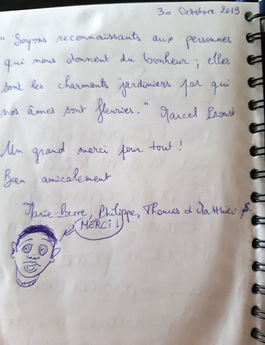 30 Octobre 2019
" Soyons reconnaissants aux personnes
qui nous donnent du bonheur ; elles
sont les charmants jardiniers par qui
nos âmes sont fleuries. " Marcel Proust
Un grand merci pour tout !
Bien amicalement
Marie-Pierre, Philippe, Thomas et Matthieu
MERCI !